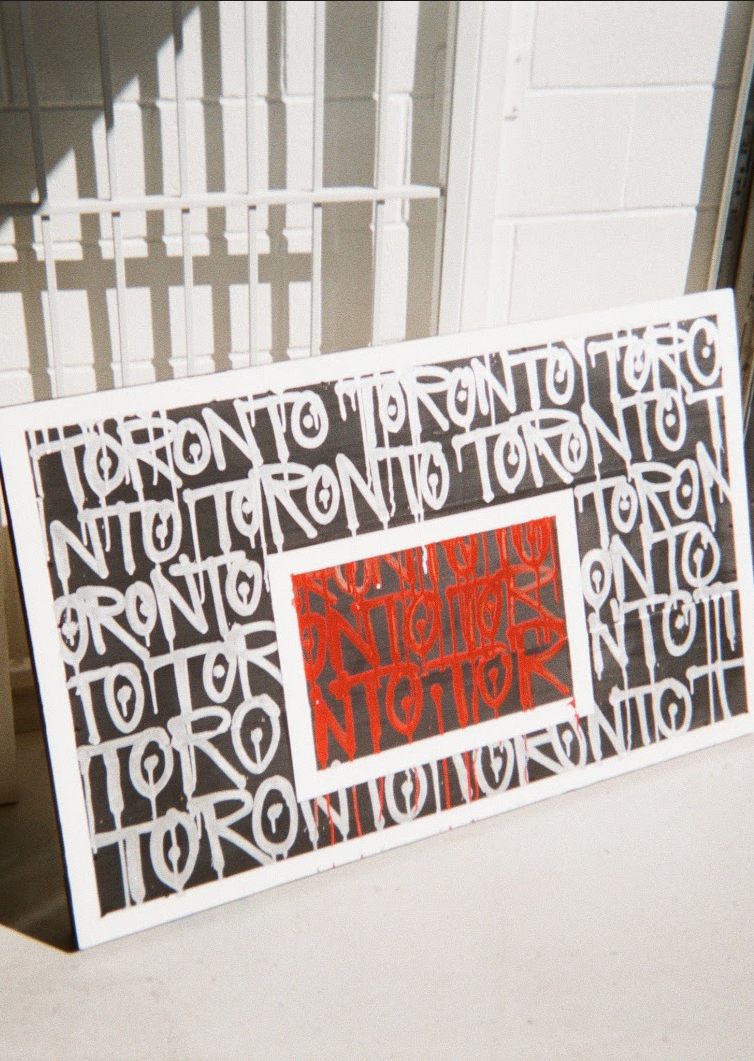 TORONTO TORONTO TORO
NTO TORONTO TORONTO T
ORONTO
TORON
ONTO
TO TOR
NTO
TORO
T
TORONTO TORONTO T
ONTO TOR
NTO TOR